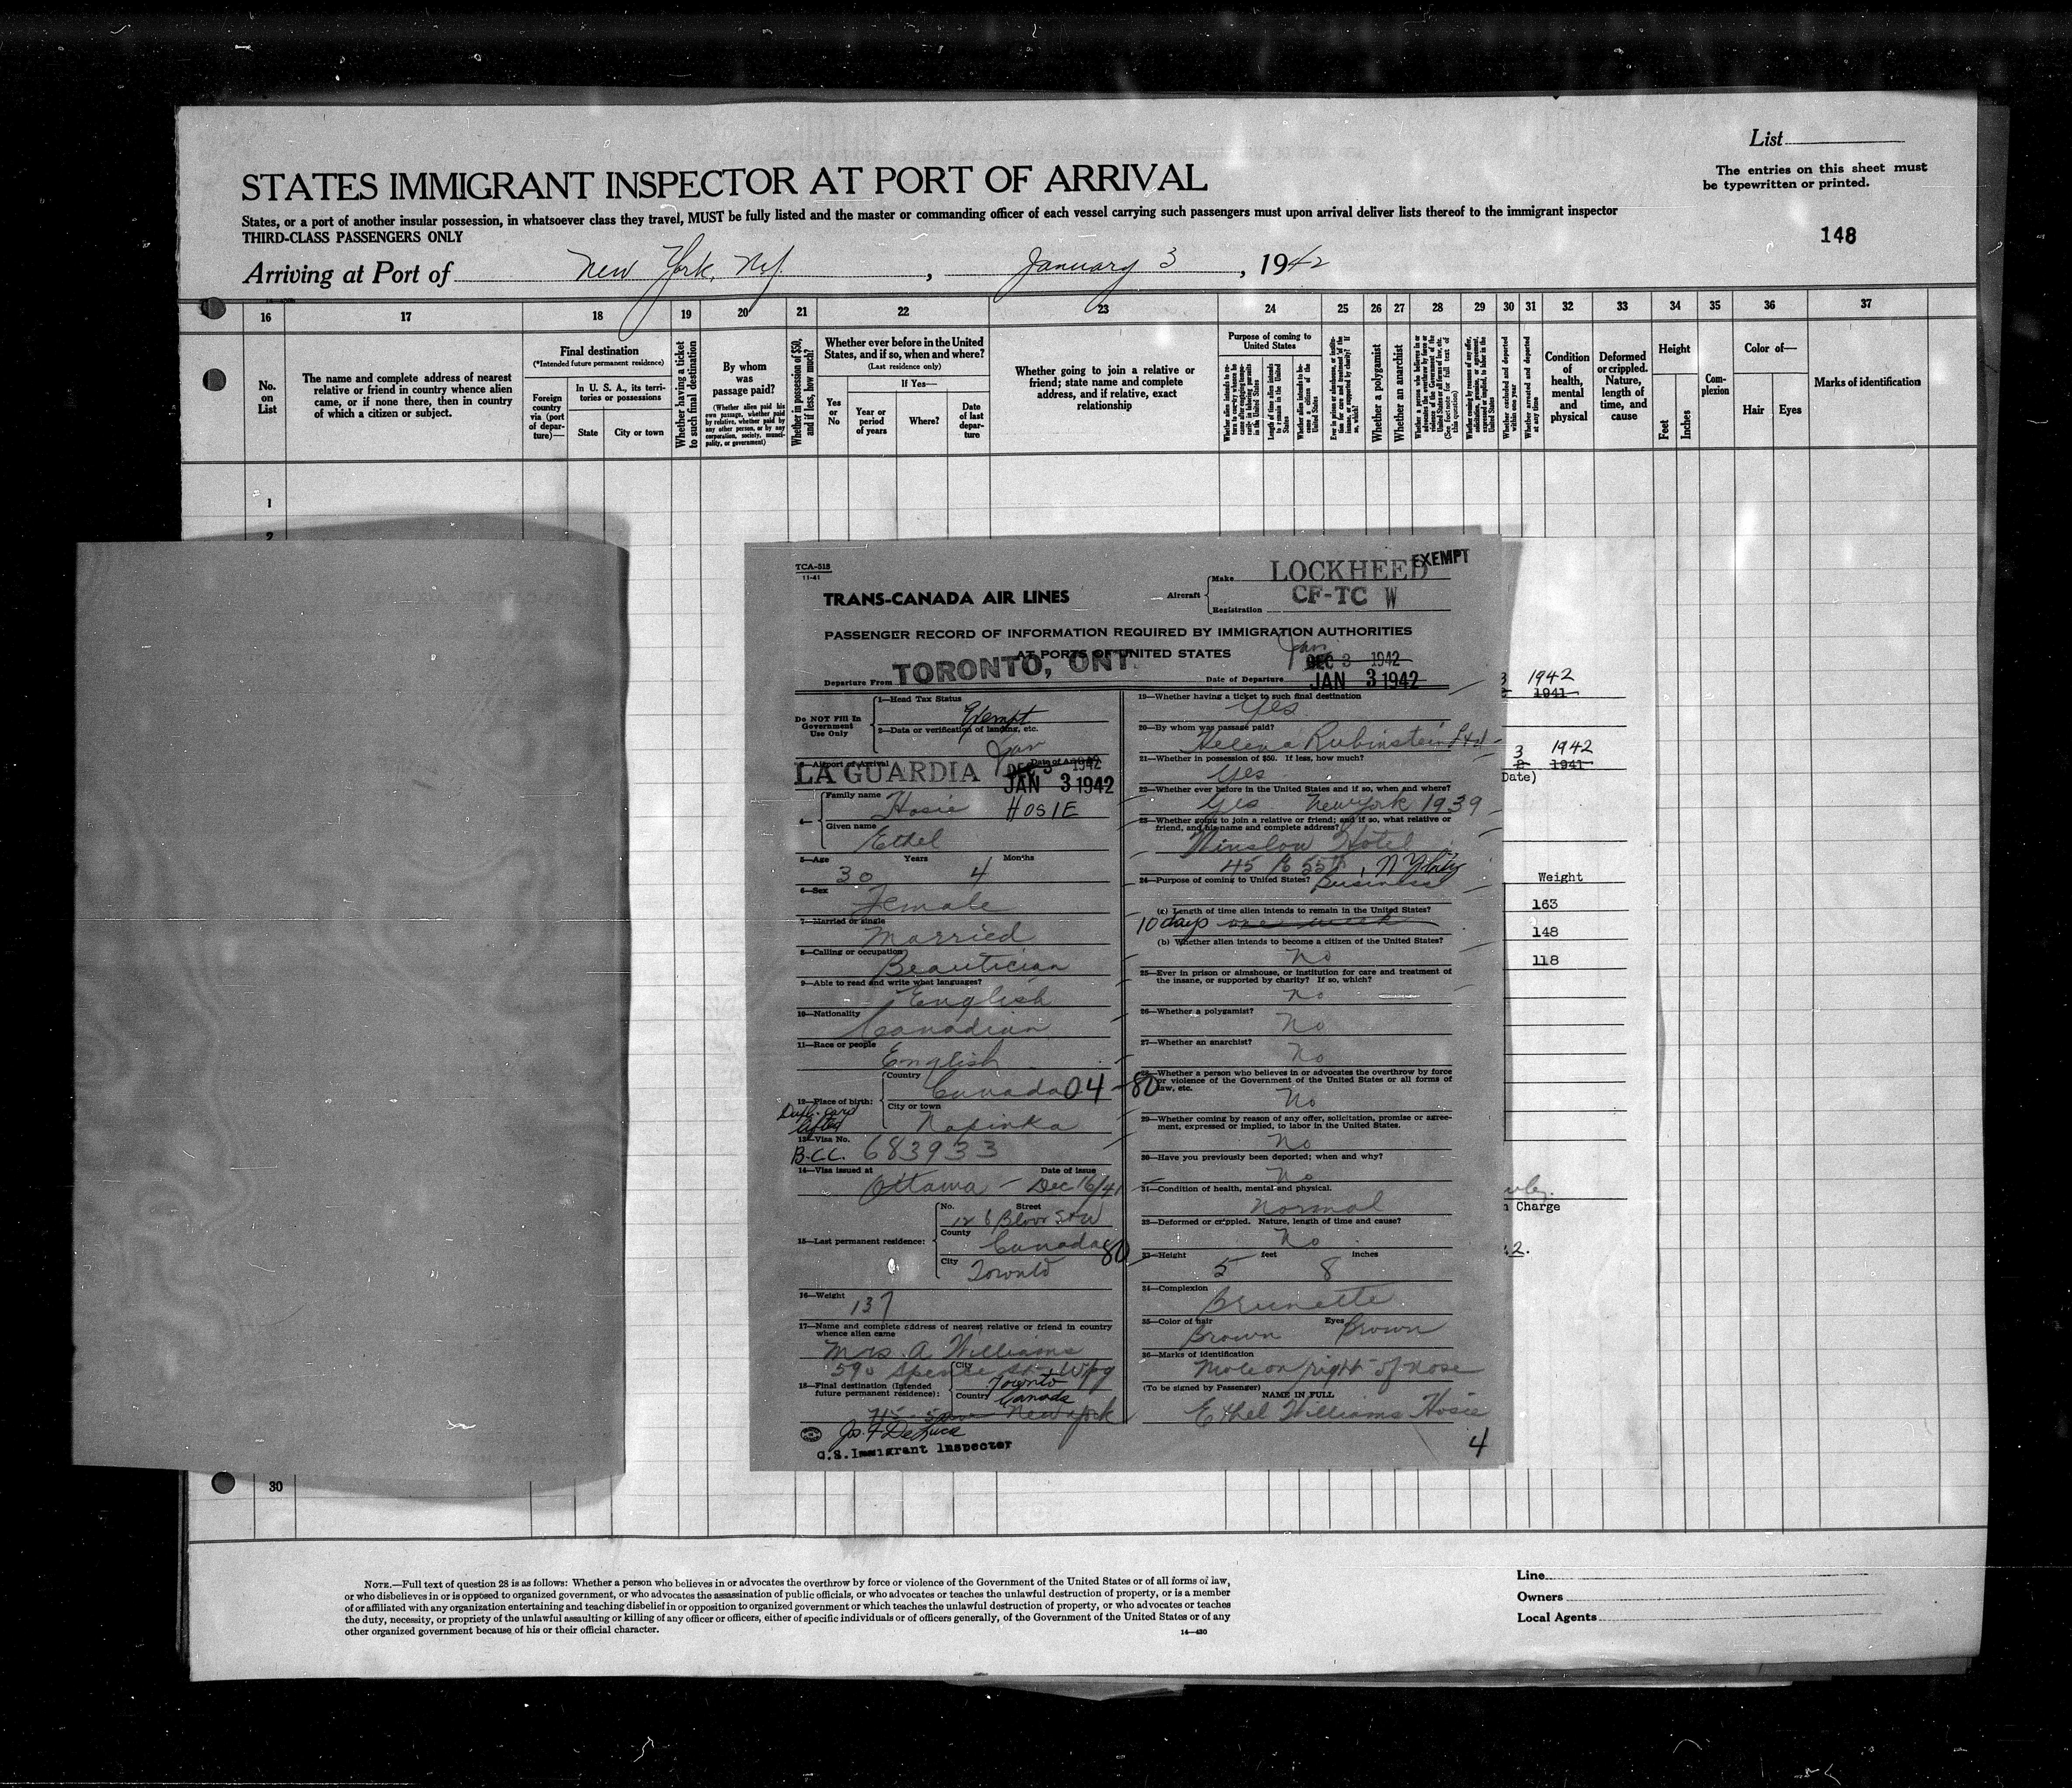 List
The entries on this sheet must
be typewritten or printed.
STATES IMMIGRANT INSPECTOR AT PORT OF ARRIVAL
States, or a port of another insular possession, in whatsoever class they travel, MUST be fully listed and the master or commanding officer of each vessel carrying such passengers must upon arrival deliver lists thereof to the immigrant inspector
THIRD-CLASS PASSENGERS ONLY
148
Arriving at Port of New York, N.Y. , January 3 , 1942
16 17 18 19 20 21 22 23 24 25 26 27 28 29 30 31 32 33 34 35 36 37
No.
on
List
The name and complete address of nearest
relative or friend in country whence alien
came, or if none there, then in country
of which a citizen or subject.
Final destination
(*Intended future permanent residence)
Foreign
country
via (port
of depar-
ture)—
In U. S. A., its terri-
tories or possessions
State City or town
Whether having a ticket
to such final destination
By whom
was
passage paid?
(Whether alien paid his
own passage, whether paid
by relative, whether paid by
any other person, or by any
corporation, society, munici-
pality, or government)
Whether in possession of $50,
and if less, how much?
Whether ever before in the United
States, and if so, when and where?
(Last residence only)
If Yes—
Yes
or
No
Year or
period
of years
Where?
Date
of last
depar-
ture
Whether going to join a relative or
friend; state name and complete
address, and if relative, exact
relationship
Purpose of coming to
United States
Length of time alien intends
to remain in the United
States
Whether a polygamist
Whether an anarchist
Whether excluded and deported
within one year
Whether arrested and deported
at any time
Condition
of
health,
mental
and
physical
Deformed
or crippled.
Nature,
length of
time, and
cause
Height
Feet Inches
Com-
plexion
Color of—
Hair Eyes
Marks of identification
1
2
30
TCA-518
11-41
TRANS-CANADA AIR LINES
Aircraft Make LOCKHEED EXEMPT
Registration CF-TC W
PASSENGER RECORD OF INFORMATION REQUIRED BY IMMIGRATION AUTHORITIES
AT PORTS OF UNITED STATES
Departure From TORONTO, ONT.
Date of Departure Jan DEC 3 1942
JAN 3 1942
Do NOT Fill In
Government
Use Only
1—Head Tax Status
Exempt
2—Data or verification of landing, etc.
3—Airport of Arrival LA GUARDIA
Date of Arrival Jan DEC 3 1942
JAN 3 1942
4— Family name Hosie HOSIE
Given name
Ethel
5—Age Years Months
30 4
6—Sex
Female
7—Married or single
Married
8—Calling or occupation
Beautician
9—Able to read and write what languages?
English
10—Nationality
Canadian
11—Race or people
English
12—Place of birth:
Country
Canada 04 -80
City or town
Napinka
Dupl. card
lifted
13—Visa No.
B.C.C. 683933
14—Visa issued at Date of issue
Ottawa - Dec 16/41
15—Last permanent residence:
No. Street
126 Bloor St W
County
Canada 80
City
Toronto
16—Weight
137
17—Name and complete address of nearest relative or friend in country
whence alien came
Mrs. A Williams
590 Spence St Wpg
18—Final destination (Intended
future permanent residence):
City
Toronto
Country
Canada
New York
Jos. F DeLuca
U.S. Immigrant Inspector
19—Whether having a ticket to such final destination
Yes
20—By whom was passage paid?
Helena Rubinstein Ltd
21—Whether in possession of $50. If less, how much?
Yes
22—Whether ever before in the United States and if so, when and where?
Yes New York 1939
23—Whether going to join a relative or friend; and if so, what relative or
friend, and his name and complete address?
Winslow Hotel
45 E 55th, N Y City
24—Purpose of coming to United States? Business
(c) Length of time alien intends to remain in the United States?
10 days one week
(b) Whether alien intends to become a citizen of the United States?
No
25—Ever in prison or almshouse, or institution for care and treatment of
the insane, or supported by charity? If so, which?
No
26—Whether a polygamist?
No
27—Whether an anarchist?
No
28—Whether a person who believes in or advocates the overthrow by force
or violence of the Government of the United States or all forms of
law, etc.
No
29—Whether coming by reason of any offer, solicitation, promise or agree-
ment, expressed or implied, to labor in the United States.
No
30—Have you previously been deported; when and why?
No
31—Condition of health, mental and physical.
Normal
32—Deformed or crippled. Nature, length of time and cause?
No
33—Height feet inches
5 8
34—Complexion
Brunette
35—Color of hair Eyes
Brown Brown
36—Marks of identification
Mole on right of nose
(To be signed by Passenger)
NAME IN FULL
Ethel Williams Hosie
4
3 1942
1941
3 1942
2 1941
Date)
Weight
163
148
118
Charge
2.
NOTE.—Full text of question 28 is as follows: Whether a person who believes in or advocates the overthrow by force or violence of the Government of the United States or of all forms of law,
or who disbelieves in or is opposed to organized government, or who advocates the assassination of public officials, or who advocates or teaches the unlawful destruction of property, or is a member
of or affiliated with any organization entertaining and teaching disbelief in or opposition to organized government or which teaches the unlawful destruction of property, or who advocates or teaches
the duty, necessity, or propriety of the unlawful assaulting or killing of any officer or officers, either of specific individuals or of officers generally, of the Government of the United States or of any
other organized government because of his or their official character.
14—430
Line
Owners
Local Agents